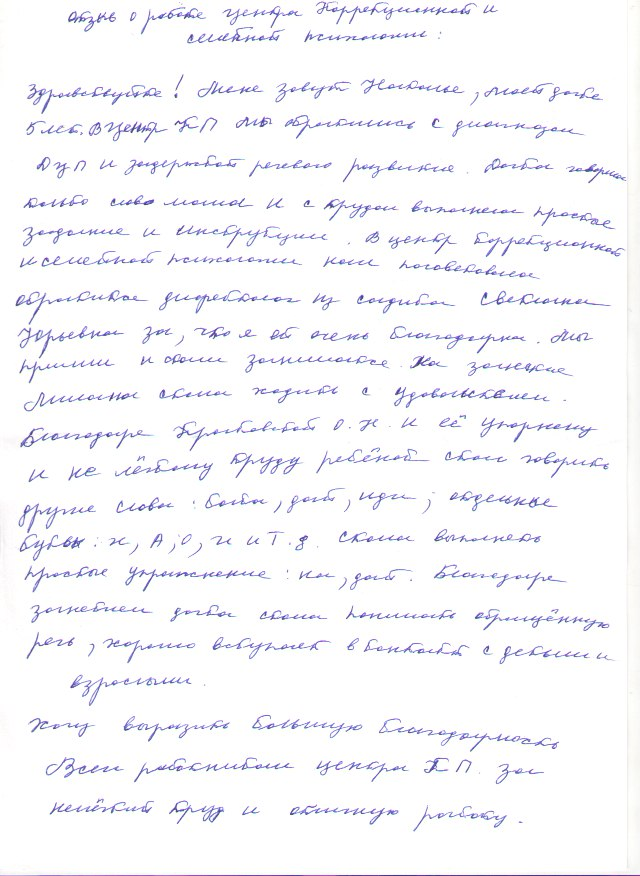 Отзыв о работе центра Коррекционной и
семейной психологии:
Здравствуйте! Меня зовут Наталья, моей дочке
5 лет. В центр КП мы обратились с диагнозом
ДЦП и задержкой речевого развития. Дочка говорила
только слово мама и с трудом выполняла простые
задание и инструкции. В центр Коррекционной
и семейной психологии нам посоветовала
обратится дефектолог из садика Светлана
Юрьевна за, что я ей очень благодарна. Мы
пришли и стали заниматься. На занятие
Милана стала ходить с удовольствием.
Благодаря О.Н. и её упорному
и не лёгкому труду ребёнок стал говорить
другие слова: баба, дай, иди; отдельные
буквы: и, А, О, и т.д. Стала выполнять
простые упражнение: на, дай. Благодаря
занятием дочка стала понимать обращённую
речь, хорошо вступает в контакт с детьми и
взрослыми.
Хочу выразить большую благодарность
Всем работникам центра КП. за
нелёгкий труд и отличную работу.